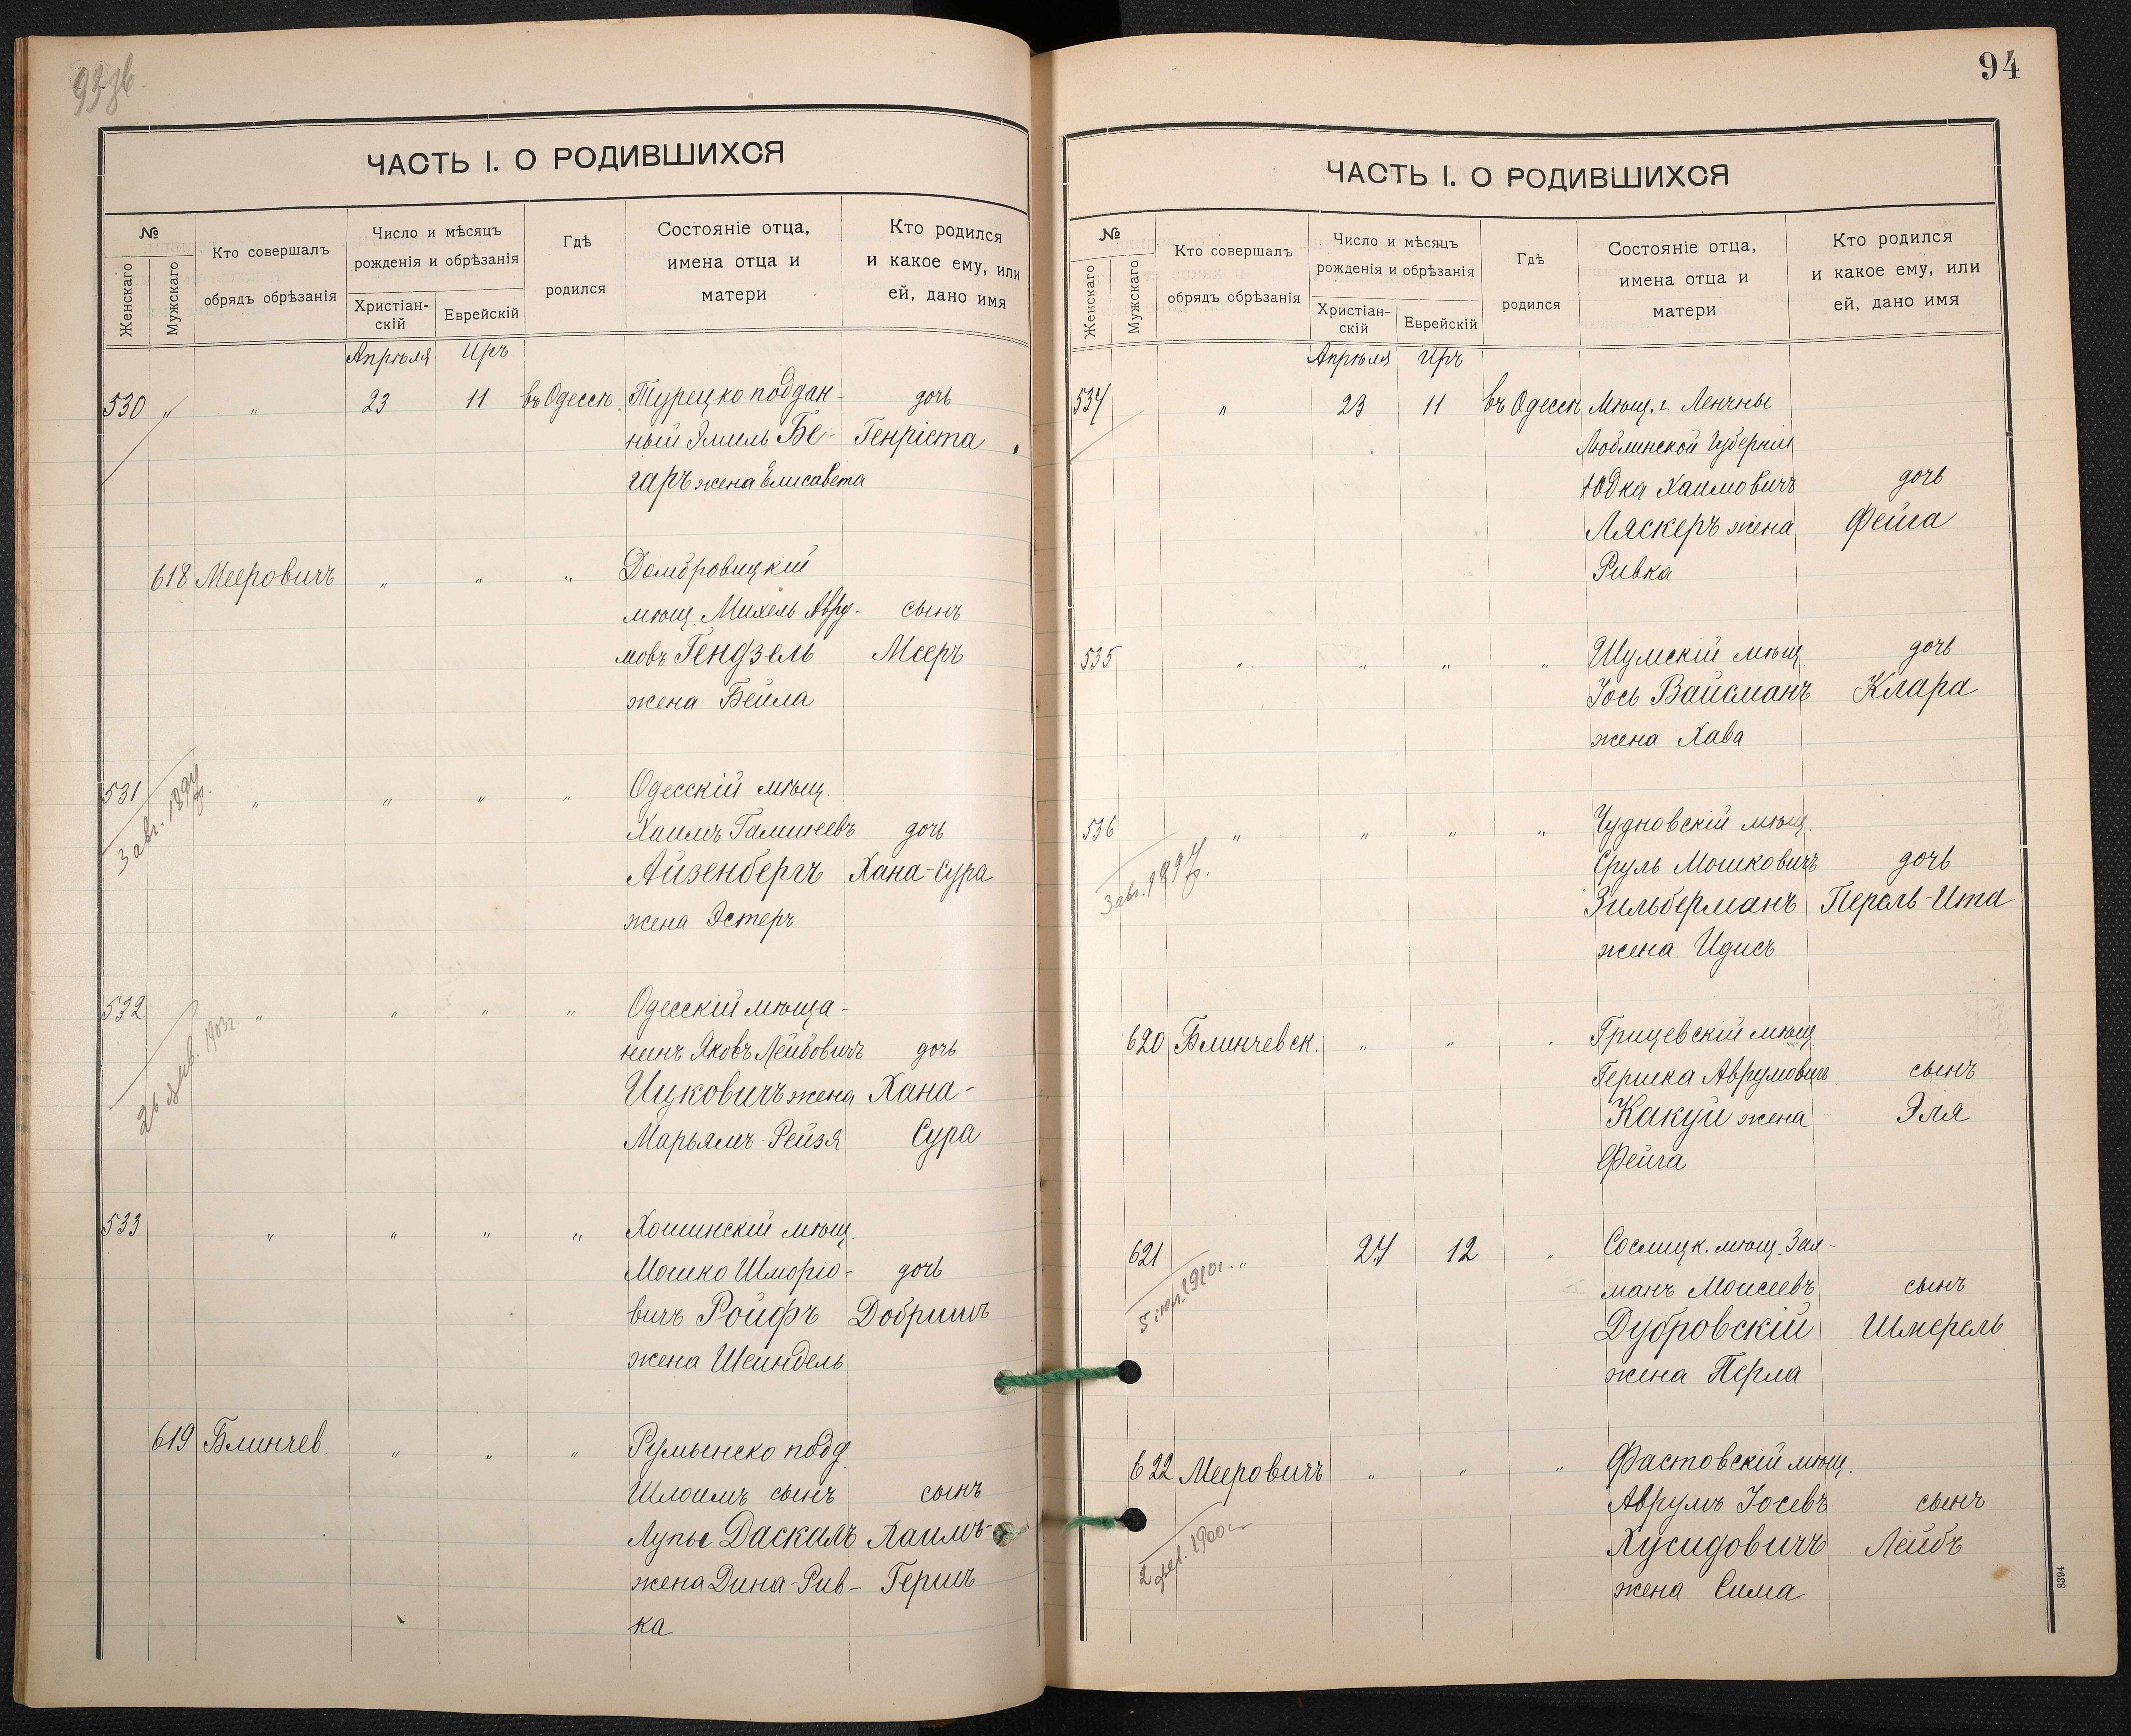 93 об.
ЧАСТЬ I. О РОДИВШИХСЯ
№
Женскаго
Мужскаго
Кто совершалъ
обрядъ обрѣзанія
Число и мѣсяцъ
рожденія и обрѣзанія
Христіан-
скій
Еврейскій
Гдѣ
родился
Состояніе отца,
имена отца и
матери
Кто родился
и какое ему, или
ей, дано имя
Апрѣля Иръ
530 " " 23 11 въ Одессѣ Турецко поддан- дочь
ный Эмиль Бе- Генріета
гаръ жена Елисавета
618 Мееровичъ " " " Домбровицкій
мѣщ. Михель Авру- сынъ
мовъ Гендзель Мееръ
жена Бейла
531 " " " " Одесскій мѣщ.
3 авг. 1897 г.
Хаимъ Гамшеевъ дочь
Айзенбергъ Хана-Сура
жена Эстеръ
532 " " " " Одесскій мѣща-
1903 г.
нинъ Яковъ Лейбовичъ дочь
Ицковичъ жена Хана-
Марьямъ-Рейзя Сура
533 " " " " Хошинскій мѣщ.
Мошко Шморіо- дочь
вичъ Ройфъ Добришъ
жена Шейндель
619 Блинчев. " " " Румынско подд.
Шлоимъ сынъ сынъ
Лупы Даскалъ Хаимъ-
жена Дина-Рив- Гершъ
ка
94
ЧАСТЬ I. О РОДИВШИХСЯ
№
Женскаго
Мужскаго
Кто совершалъ
обрядъ обрѣзанія
Число и мѣсяцъ
рожденія и обрѣзанія
Христіан-
скій
Еврейскій
Гдѣ
родился
Состояніе отца,
имена отца и
матери
Кто родился
и какое ему, или
ей, дано имя
Апрѣля Иръ
534 " 23 11 въ Одессѣ Мѣщ. г. Ленчны
Люблинской Губерніи
Юдка Хаимовичъ дочь
Ляскеръ жена Фейга
Ривка
535 " " " " Шумскій мѣщ. дочь
Іось Вайсманъ Клара
жена Хава
536 " " " " Чудновскій мѣщ.
3 авг. 1897 г.
Сруль Мошковичъ дочь
Зильберманъ Перель-Ита
жена Идисъ
620 Блинчевск. " " " Грицевскій мѣщ.
Гершка Аврумовичъ сынъ
Какуй жена Эля
Фейга
621 " 24 12 " Сослицк. мѣщ. Зал-
5 іюл. 1910 г.
манъ Моисеевъ сынъ
Дубровскій Шмерель
жена Перла
622 Мееровичъ " " " Фастовскій мѣщ.
2 фев. 1900 г.
Аврумъ Іосевъ сынъ
Хусидовичъ Лейбъ
жена Сима
8394